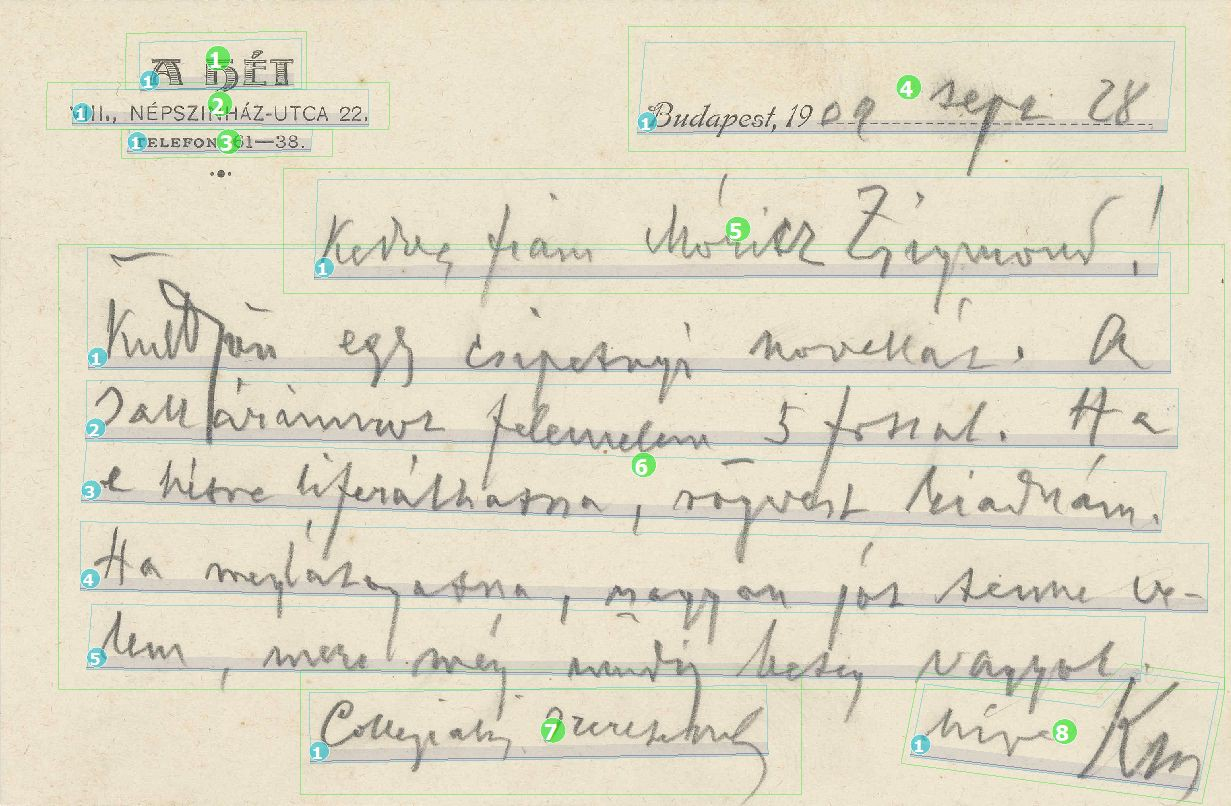 A HÉT
VIII., NÉPSZINHÁZ-UTCA 22.
TELEFON 61—38.
Budapest, 1909 sept 28
Kedves fiam Móricz Zsigmond!
Küldjön egy csipetnyi novellát. A
felemelem 5 forttal. Ha
e hétre liferálhatna, rögvest kiadnám.
Ha meglátogatna, nagyon jót tenne ve-
lem, mert még mindig beteg vagyok.
Collegialis
híve